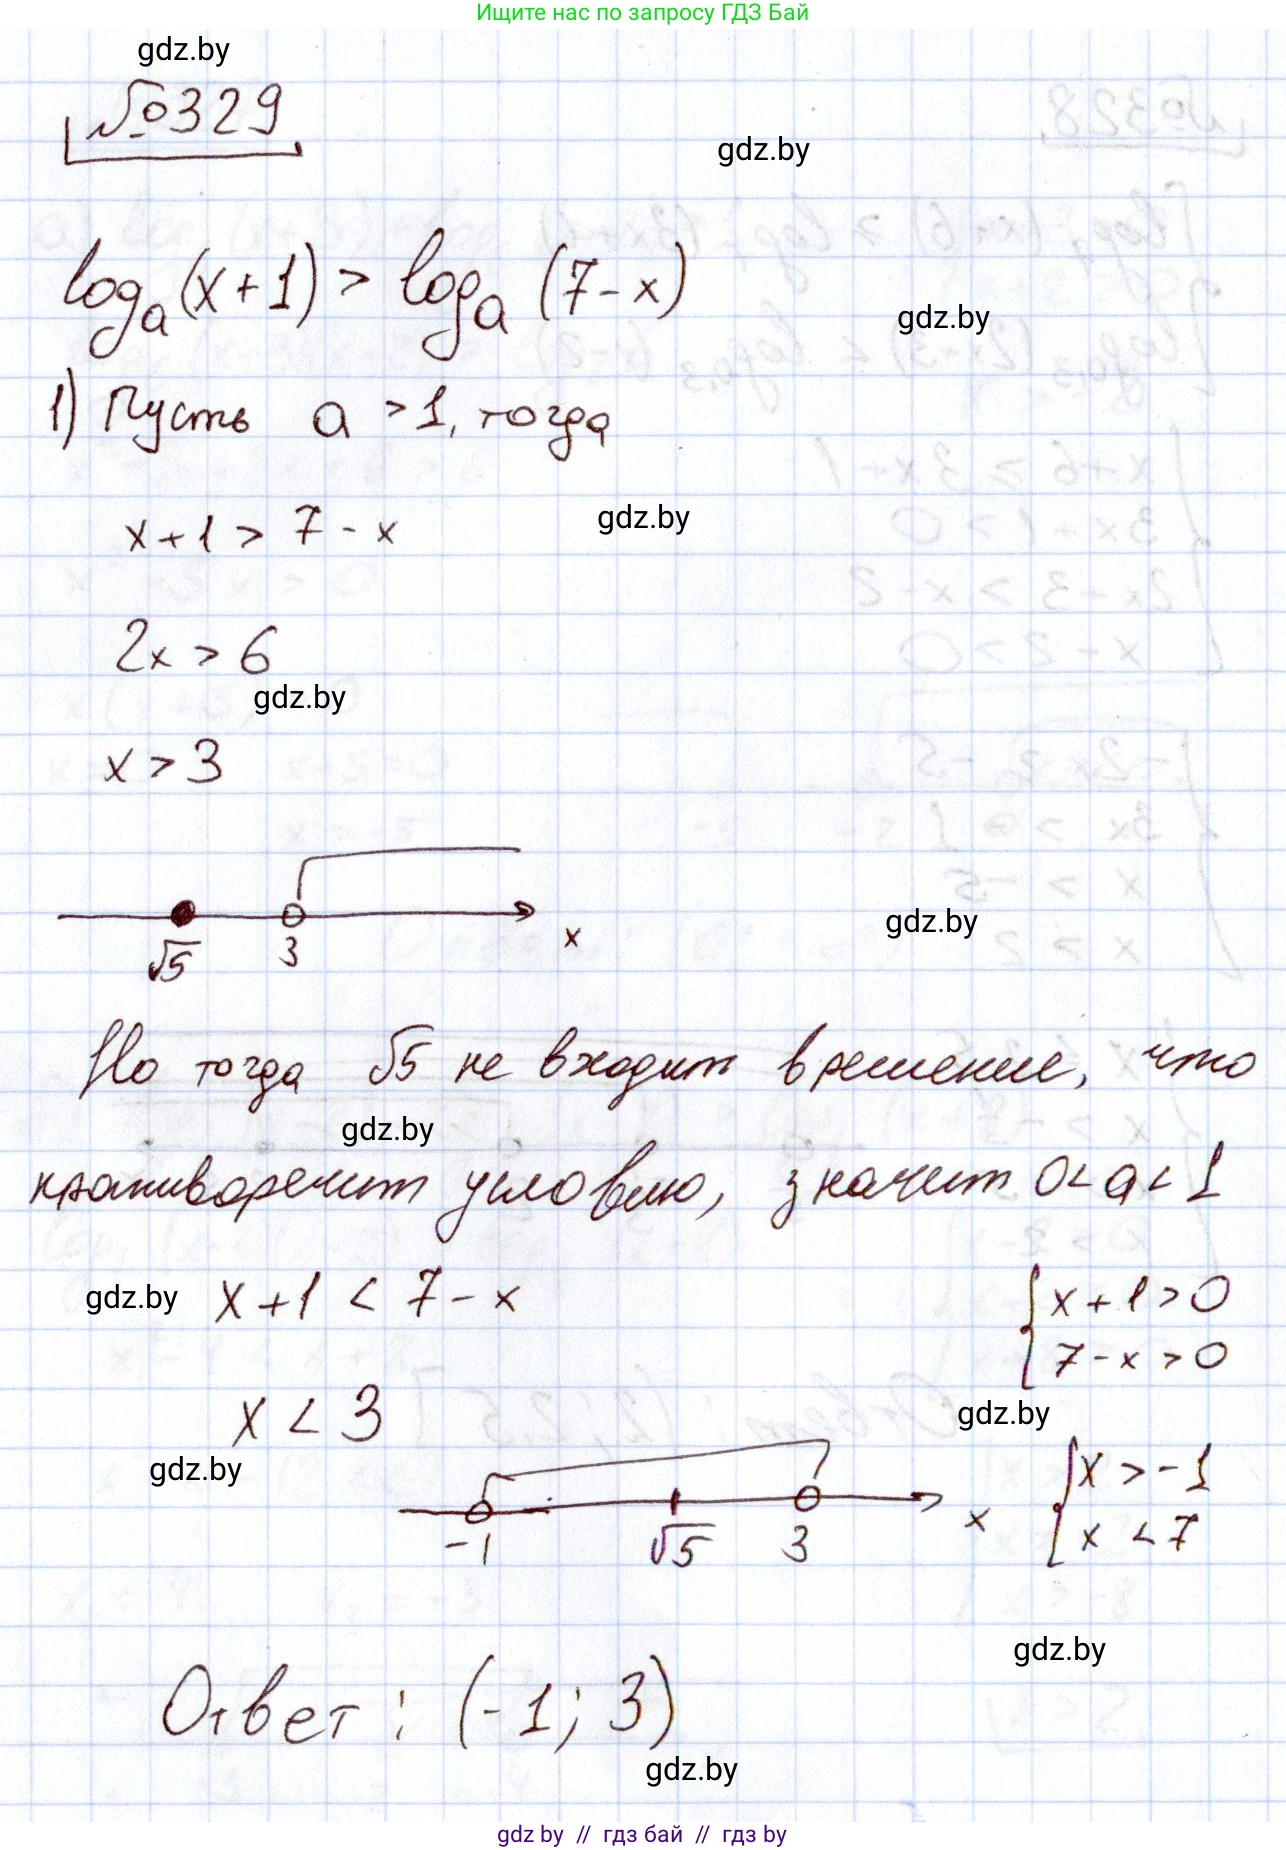 Ищите нас по запросу ГДЗ Бай
gdz.by
№329
gdz.by
logₐ(x+1) > logₐ(7-x)
gdz.by
1) Пусть a > 1, тогда
x+1 > 7-x
gdz.by
2x > 6
gdz.by
x > 3
gdz.by
√5 3 x
Но тогда √5 не входит в решение, что
gdz.by
противоречит условию, значит 0<a<1
gdz.by x+1 < 7-x { x+1>0
7-x>0
x < 3
gdz.by
gdz.by
{ x > -1
x < 7
-1 √5 3 x
gdz.by
Ответ: (-1; 3)
gdz.by
gdz by // гдз бай // гдз by